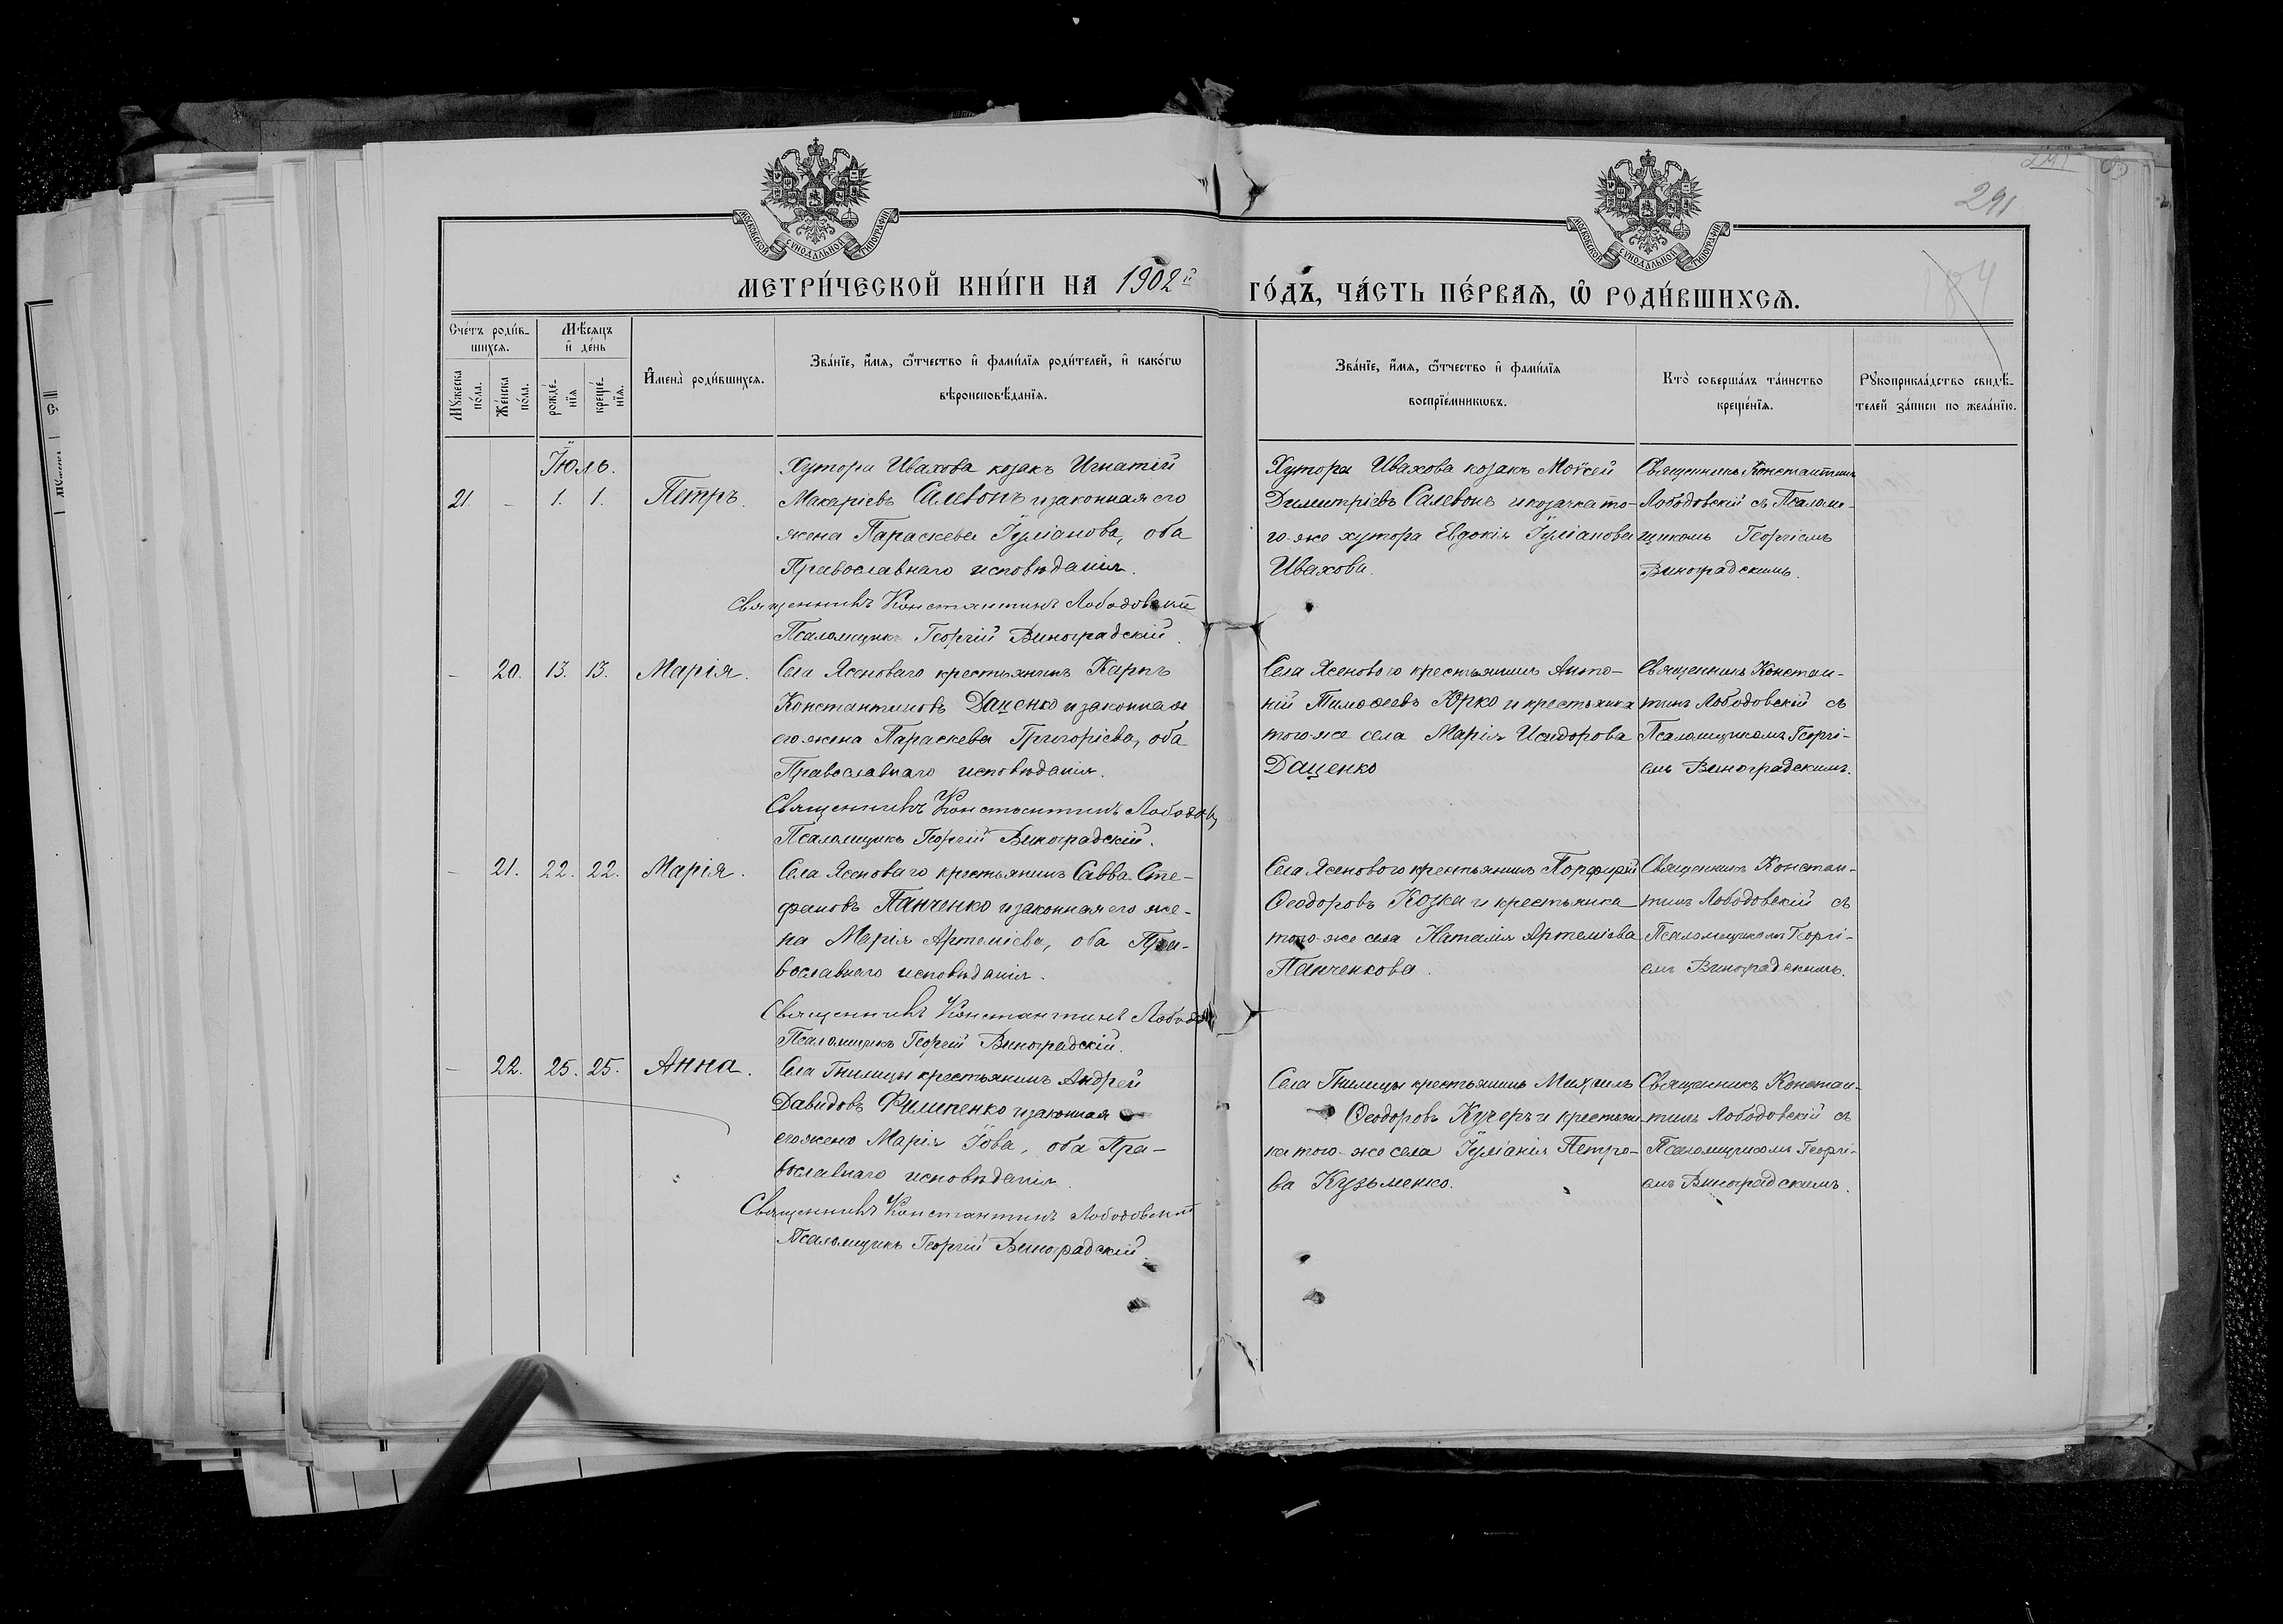 МОСКОВСКОЙ СѴНОДАЛЬНОЙ ТИПОГРАФІИ
МОСКОВСКОЙ СѴНОДАЛЬНОЙ ТИПОГРАФІИ
291
МЕТРИ́ЧЕСКОЙ КНИ́ГИ НА 1902й ГО́ДЪ, ЧА́СТЬ ПЕ́РВАѦ, Ѡ҆ РОДИ́ВШИХСѦ.
Сче́тъ роди́в-
шихсѧ.
Мѣ́сѧцъ
и҆ де́нь
И҆мена̀ роди́вшихсѧ.
Зва́нїе, и҆́мѧ, ѻ҆́тчество и҆ фами́лїѧ роди́телей, и҆ како́гѡ
вѣроисповѣ́данїѧ.
Зва́нїе, и҆́мѧ, ѻ҆́тчество и҆ фами́лїѧ
воспрїе́мникѡвъ.
Кто̀ соверша́лъ та́инство
креще́нїѧ.
Рꙋкоприкла́дство свидѣ́-
телей за́писи по жела́нїю.
Мꙋ́жеска
по́ла.
Же́нска
по́ла.
рожде́-
нїѧ
креще́-
нїѧ.
Іюль.
21. - 1. 1. Петръ.
Хутора Ивахова козакъ Игнатій
Макаріевъ Салевонъ и законная его
жена Параскева Іуліанова, оба
Православнаго исповѣданія.
Священникъ Константинъ Лободовскій
Псаломщикъ Георгій Виноградскій.
Хутора Ивахова козакъ Моѵсей
Димитріевъ Салевонъ и козачка то-
го-же хутора Евдокія Іуліанова
Ивахова.
Священникъ Константинъ
Лободовскій съ Псалом-
щикомъ Георгіемъ
Виноградскимъ.
- 20. 13. 13. Марія.
Села Ясеноваго крестьянинъ Карпъ
Константиновъ Даценко и законная
его жена Параскева Григоріева, оба
Православнаго исповѣданія.
Священникъ Константинъ Лободов
Псаломщикъ Георгій Виноградскій.
Села Ясенового крестьянинъ Анто-
ній Тимоѳеевъ Юрко и крестьянка
того-же села Марія Исидорова
Даценко
Священникъ Констан-
тинъ Лободовскій съ
Псаломщикомъ Георгі-
емъ Виноградскимъ.
- 21. 22. 22. Марія.
Села Ясеноваго крестьянинъ Савва Сте-
фановъ Панченко и законная его же-
на Марія Артеміева, оба Пра-
вославнаго исповѣданія.
Священникъ Константинъ Лободо
Псаломщикъ Георгій Виноградскій.
Села Ясенового крестьянинъ Порфирій
Ѳеодоровъ Козка и крестьянка
того-же села Наталія Артеміева
Панченкова.
Священникъ Констан-
тинъ Лободовскій съ
Псаломщикомъ Георгі-
емъ Виноградскимъ.
- 22. 25. 25. Анна.
Села Гнилицы крестьянинъ Андрей
Давидовъ Филипенко и законная
его жена Марія Іова, оба Пра-
вославнаго исповѣданія.
Священникъ Константинъ Лободовскій
Псаломщикъ Георгій Виноградскій.
Села Гнилицы крестьянинъ Михаилъ
Ѳеодоровъ Кучеръ и крестьян-
ка того-же села Іуліанія Петро-
ва Кузьменко.
Священникъ Констан-
тинъ Лободовскій съ
Псаломщикомъ Георгі-
емъ Виноградскимъ.